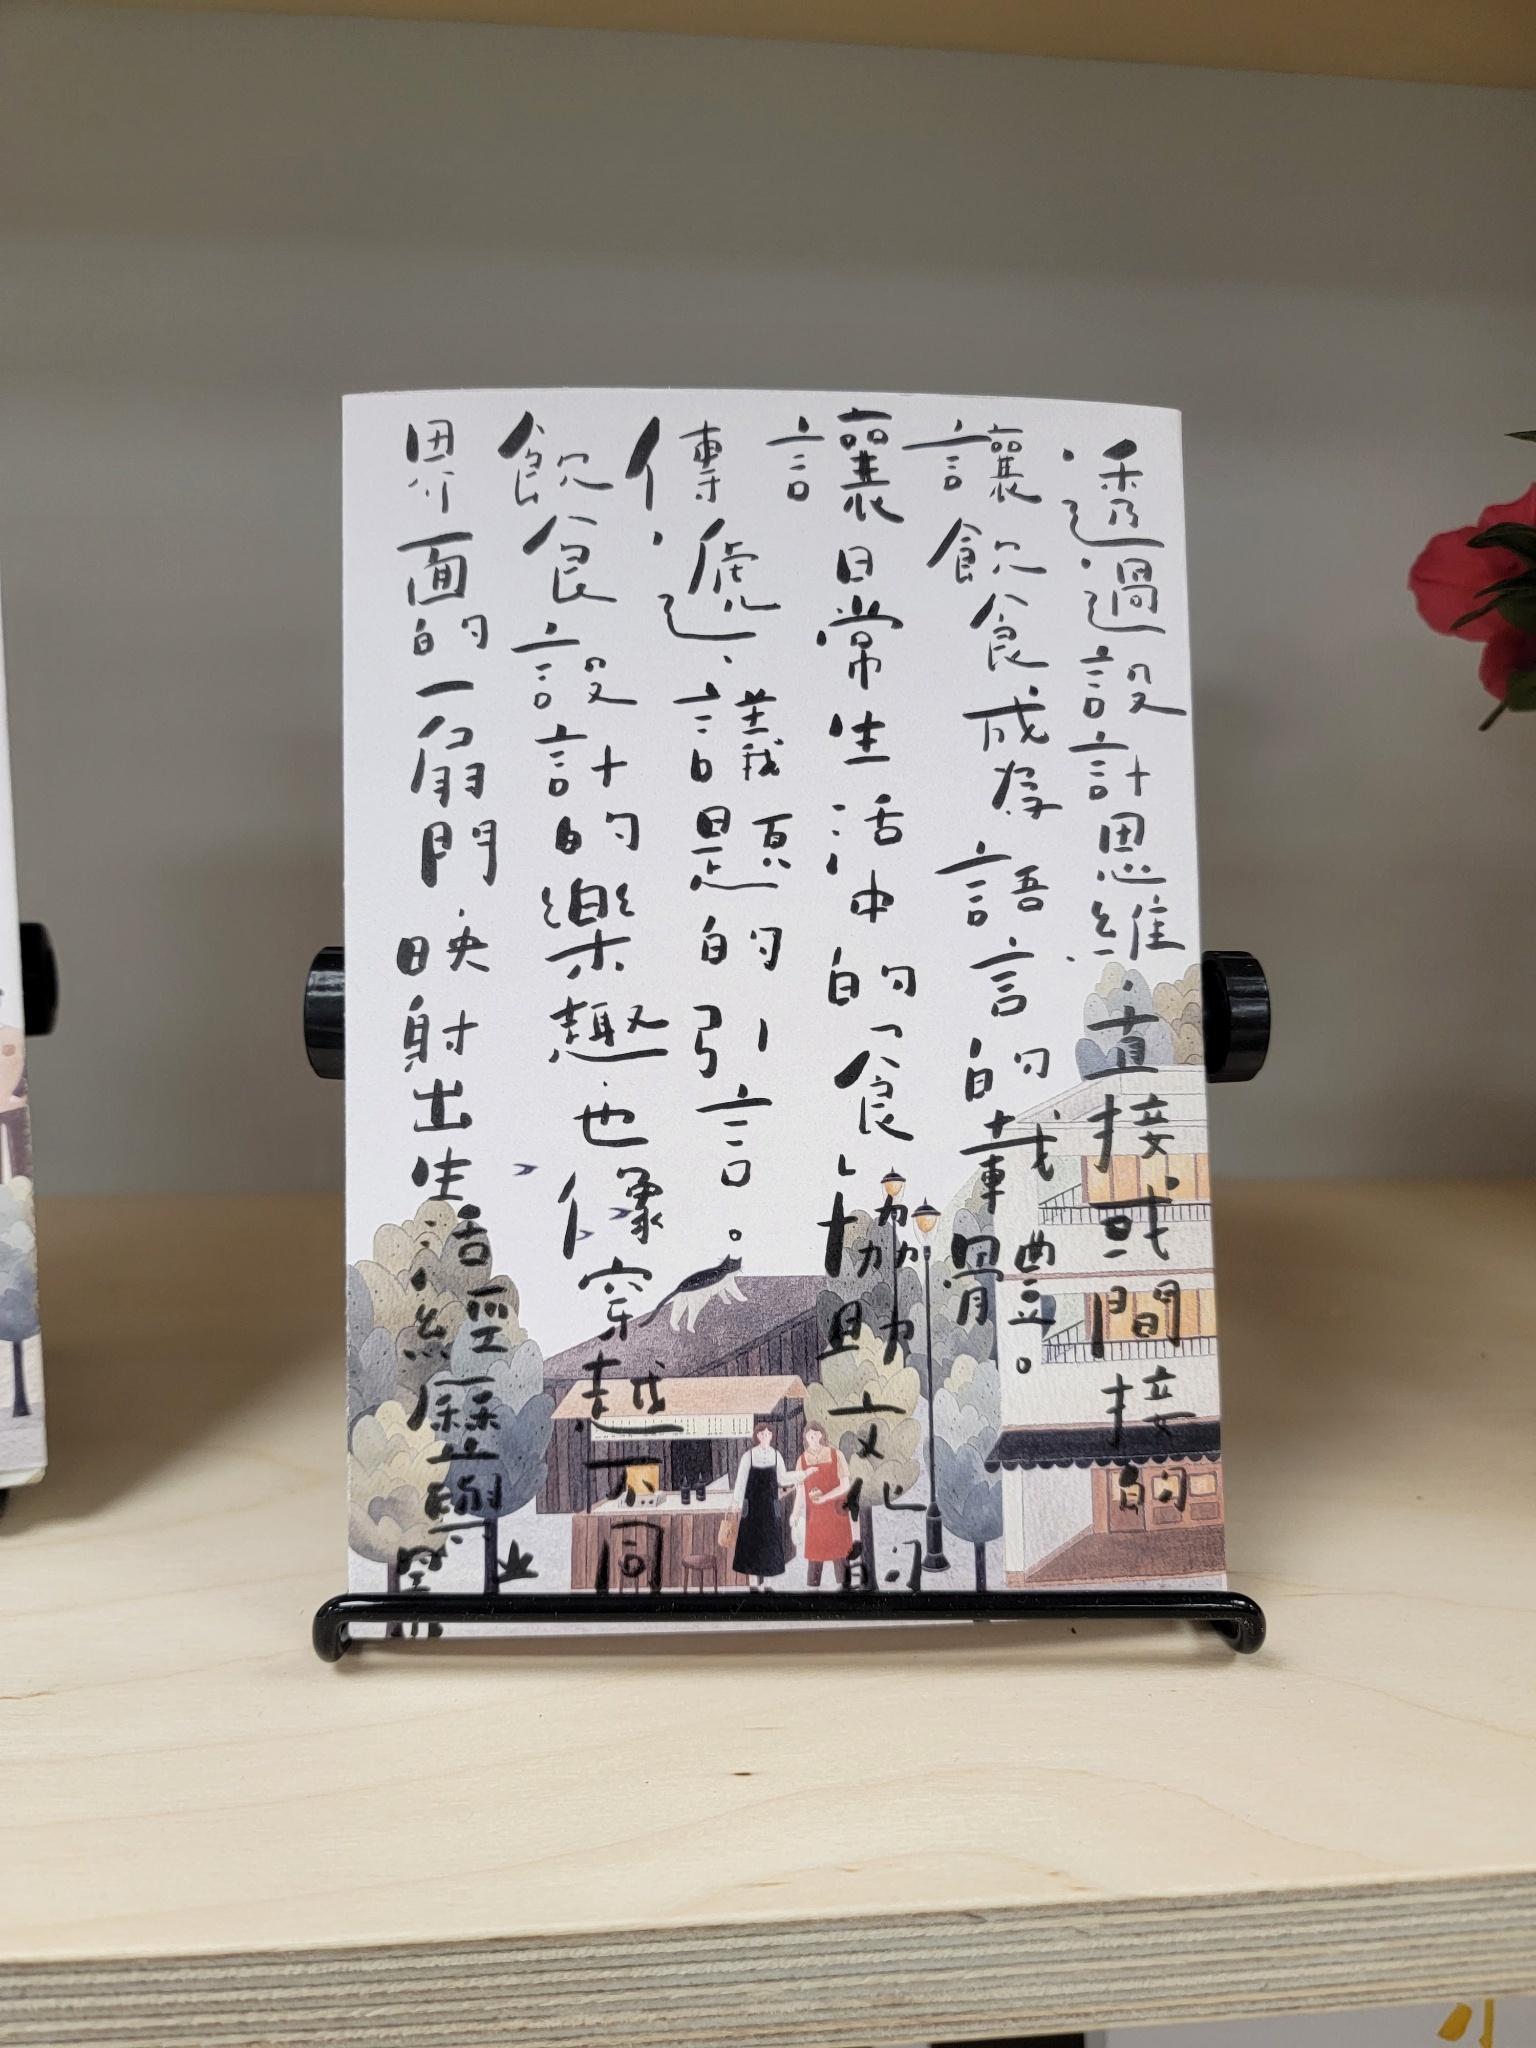 透過設計思維,直接或間接的
讓飲食成為語言的載體。
讓日常生活中的「食」協助文化的
傳遞、議題的引言。
飲食設計的樂趣,也像穿越不同
界面的一扇門,映射出生活經歷與